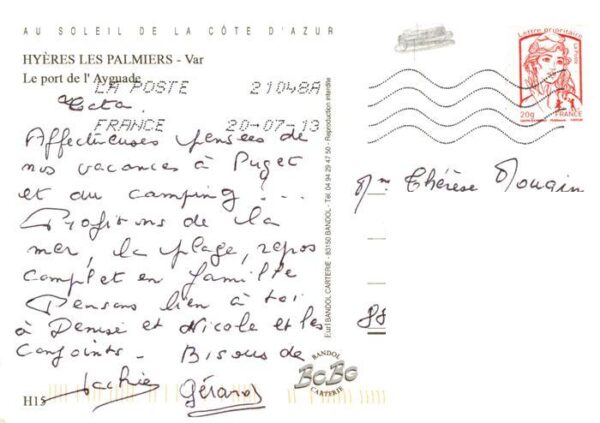 AU SOLEIL DE LA CÔTE D'AZUR
HYÈRES LES PALMIERS - Var
Le port de l'Ayguade
LA POSTE 21048A
FRANCE 20-07-13
Tata.
Affectueuses pensées de
nos vacances à Puget
et du camping !...
Profitons de la
mer, la plage, repos
complet en famille
Pensons bien à toi
à Denise et Nicole et les
Conjoints - Bisous de
Gérard
H15
Eurl BANDOL CARTERIE - 83150 BANDOL - Tél. 04 94 29 47 50 - Reproduction interdite
BANDOL
BoBo
CARTERIE
Lettre prioritaire
La Poste
20g FRANCE
Mme Thérèse Mougin
88